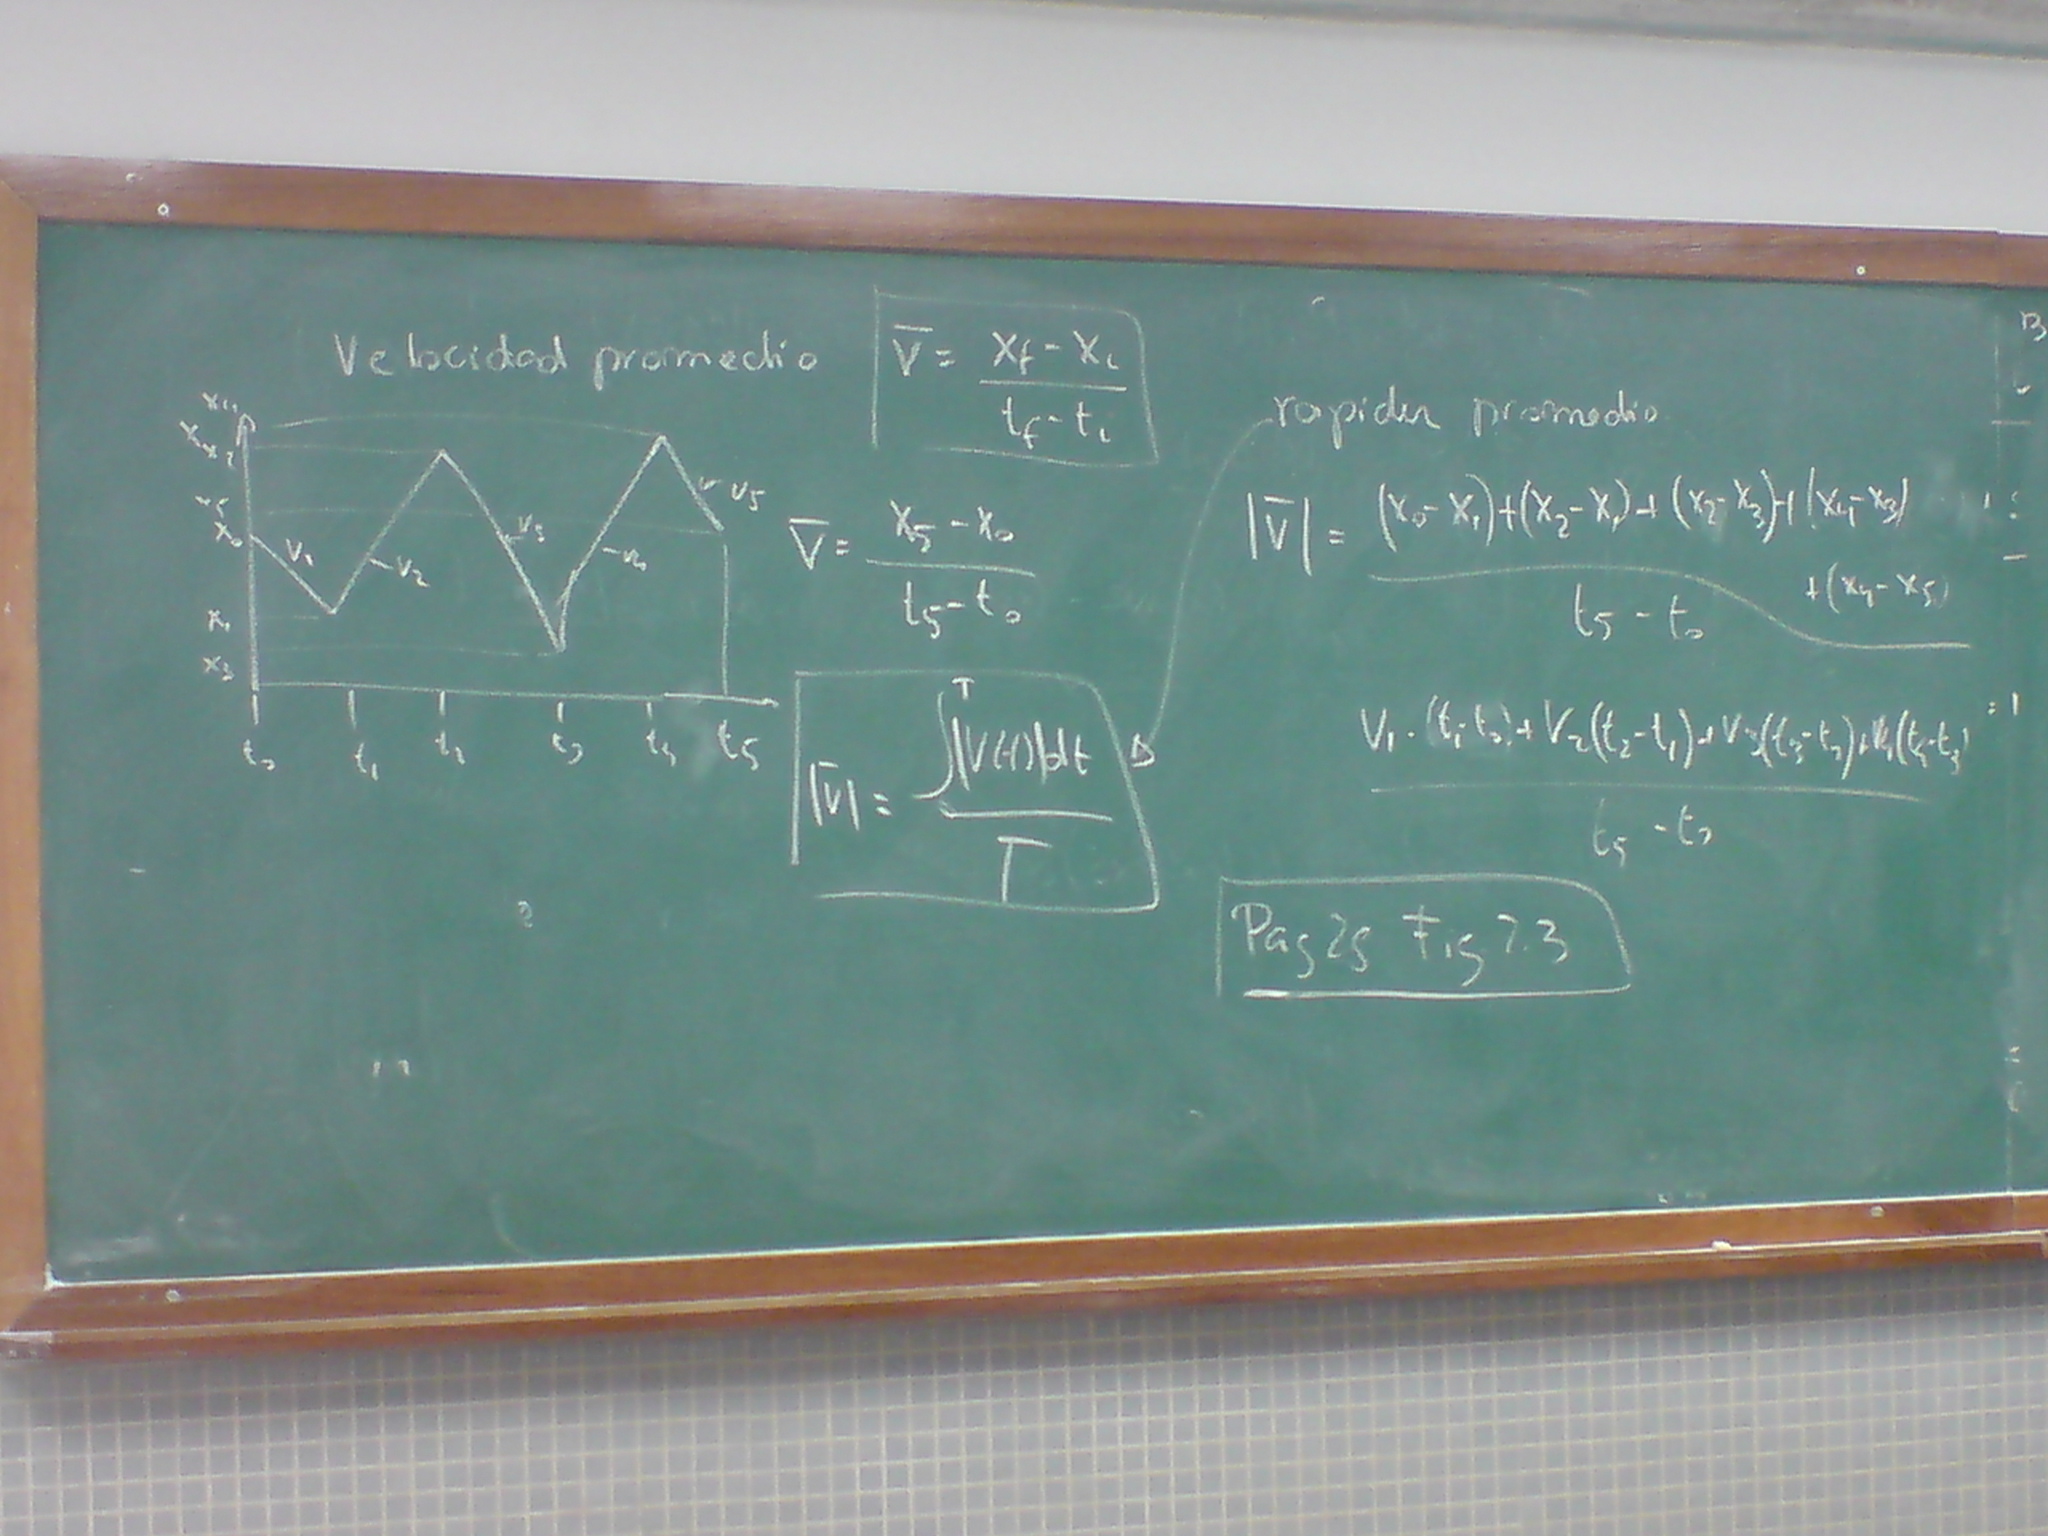 Velocidad promedio
V̄ = (xf - xi) / (tf - ti)
x4
x2
x5
x0
x1
x3
v1
v2
v3
v4
v5
t0 t1 t2 t3 t4 t5
V̄ = (x5 - x0) / (t5 - t0)
|V̄| = ∫ᵀ |V(t)| dt / T
rapidez promedio
|V̄| = (x0 - x1) + (x2 - x1) + (x2 - x3) + (x4 - x3)
+ (x4 - x5)
t5 - t0
V1 · (t1 - t0) + V2 (t2 - t1) + V3 (t3 - t2) + V4 (t4 - t3)
t5 - t0
Pag 25 Fig 2.3